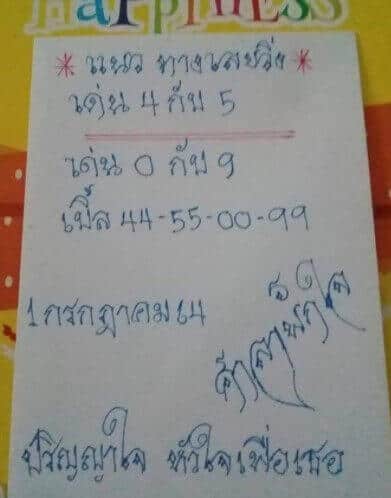 HAPPINESS
* แนว ทางเลขวิ่ง *
เด่น 4 กับ 5
เด่น 0 กับ 9
เบิ้ล 44-55-00-99
1 กรกฎาคม 64
ปริญญาใจ หัวใจเพื่อเธอ